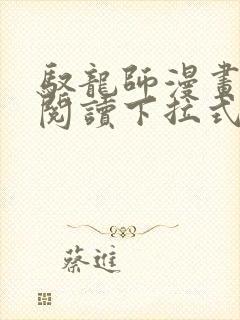 馭龍師漫畫
閱讀下拉式
蔡進